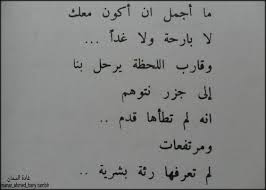 ما أجمل ان أكون معك
لا بارحة ولا غداً ...
وقارب اللحظة يرحل بنا
إلى جزر نتوهم
انه لم تطأها قدم ..
ومرتفعات
لم تعرفها رئة بشرية ..
غادة السمان